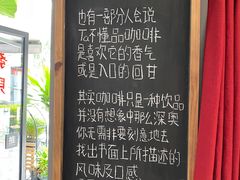 也有一部分人会说
了不懂品咖啡
是喜欢它的香气
或是入口的回甘
其实咖啡只是一种饮品
并没有想象中那么深奥
你无需非要刻意地去
找出书面上所描述的
风味及口感